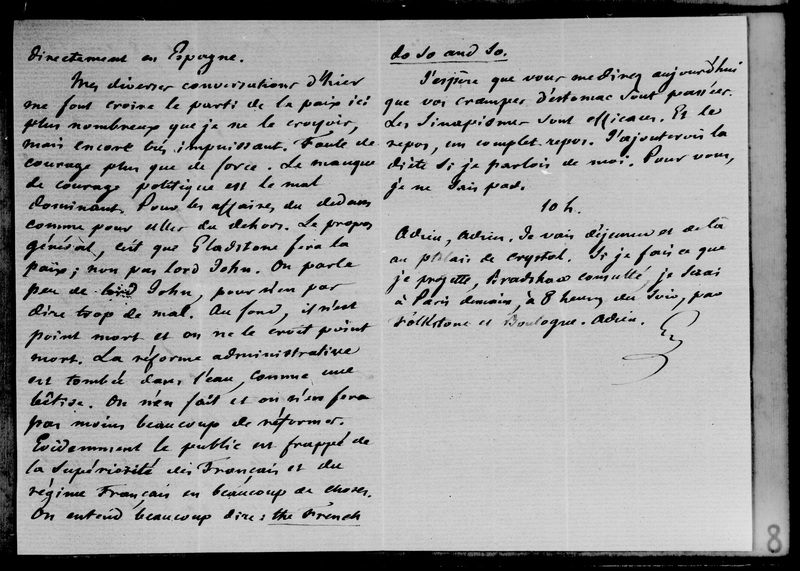 directement en Espagne.
Mes diverses conversations d'hier
me font croire le parti de la paix ici
plus nombreux que je ne le croyois,
mais encore très impuissant. Faute de
courage plus que de force. Le manque
de courage politique est le mal
dominant. Pour les affaires du dedans
comme pour celles du dehors. Le propos
général, c'est que Gladstone fera la
paix ; non pas lord John. On parle
peu de lord John, pour n'en pas
dire trop de mal. Au fond, il n'est
point mort et on ne le croit point
mort. La réforme administrative
est tombée dans l'eau, comme une
bêtise. On n'en fait et on n'en fera
pas moins beaucoup de réformes.
Evidemment le public est frappé de
la supériorité des Français et du
régime Français en beaucoup de choses.
On entend beaucoup dire : the French
do so and so.
J'espère que vous me direz aujourd'hui
que vos crampes d'estomac sont passées.
Les sinapismes sont efficaces. Et le
repos, un complet repos. J'ajouterois la
diète si je parlois de moi. Pour vous,
je ne sais pas.
10 h.
Adieu, Adieu. Je vais déjeuner et de là
au palais de Crystal. Si je fais ce que
je projette, Bradshaw consulté, je serai
à Paris demain, à 8 heures du soir, par
Folkstone et Boulogne. Adieu.
8